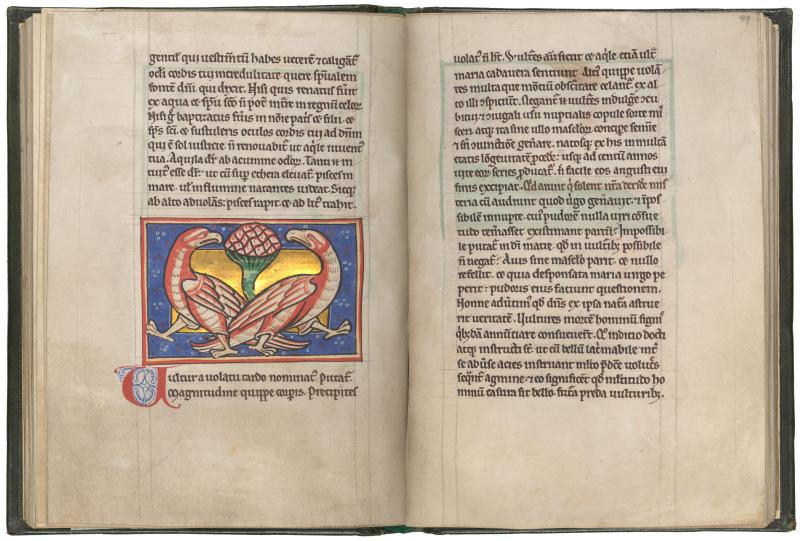 gentiſ qui veſtim̄tū habeſ vetere ⁊ caligāt
oc̄li cordiſ tui incredulitate quere ſpūalem
fontē dn̄i. qui dixit. Niſi quiſ renatuſ fūit
ex aqua ⁊ ſpū ſc̄o n̄ pot̄ int̄re in regnū celoꝝ.
baptizatuſ fūiſ in nōīe patͥſ ⁊ filii ⁊
ſpſ ſc̄i. ⁊ ſuſtuleriſ oculoſ cordiſ tui ad dn̄m
qui ē ſol iuſticie n̄ renovabit̄ ut aq̄le iuvent̄
tua. Aquila dr̄ ab acumine oc̄loꝝ. Tanti
tuit̄ eſſe dr̄: ut cū ſup̄ etheia elevat̄ piſceſ in
mare. ul̓ in flumine natanteſ videat. Sicqꝫ
ab alto advolanſ: piſceſ rapit. ⁊ ad lit̄ trahit.
Vultur a volatu tardo nominat̄ putat̄
magnitudine quippe corpiſ. Precipiteſ
49
volat̄ n̄ hn̄t. Vult̄eſ aūt ſicut ⁊ aq̄le. etiā ult̄
maria cadavera ſentiunt. Altī quippe volā
teſ multa que mōtiū obſcuritate celant̄. ex al
to illi aſpiciūt. Negant̄ vult̄eſ indulḡe ꝯcu
bitui ⁊ ꝯiugali uſu nuptialiſ copule ſorte mi
ſceri. atqꝫ ita ſine ullo maſcloꝝ concipe ſemīe
⁊ ſn̄ ꝯiunctione geīare. natoſqꝫ ex hiſ in multā
etatiſ lōgevitatē pcede: uſqꝫ ad centū annoſ
vite eoꝝ ſerieſ ꝓducat̄. n̄ facile eoſ anguſti evi
finiſ excipiat. Qͥd aiunt qͥ ſolent nr̄a deride miſ
teria cū audiunt quod v̓go geīavit. ⁊ ī poſ
ſibilem innupte. cuiꝰ pudorem nulla viri cōſue
tudo temaſſet exiſtimant partū? Impoſſibi
le putat̄ in dī matre. qd̓ in vult̄ibꝫ poſſibile
n̄ negat̄? Aviſ ſine maſclo parit. ⁊ nulluſ
refellit. ⁊ quia deſponſata maria virgo pe
perit: pudoriſ eiuſ faciunt queſtionem.
Nonne adūtimꝰ qd̓ dn̄ſ ex ipſa natᵃ aſtrue
rit veritatē. Vultureſ mortē hominū ſignīſ
qͥbꝫdā annūtiare conſuevert̄. Qͦ indicio docti
atqꝫ inſtructi ſt̄. ut cū bellū lac̓mabile int̄
ſe adūſe acieſ inſtruant. mlto p̓dc̄te volucͥſ
ſeqūt̄ agmine. ⁊ eo ſignificēt qd̓ multitudo ho
minū caſura ſit bello. futᵃ preda vulturibꝫ.